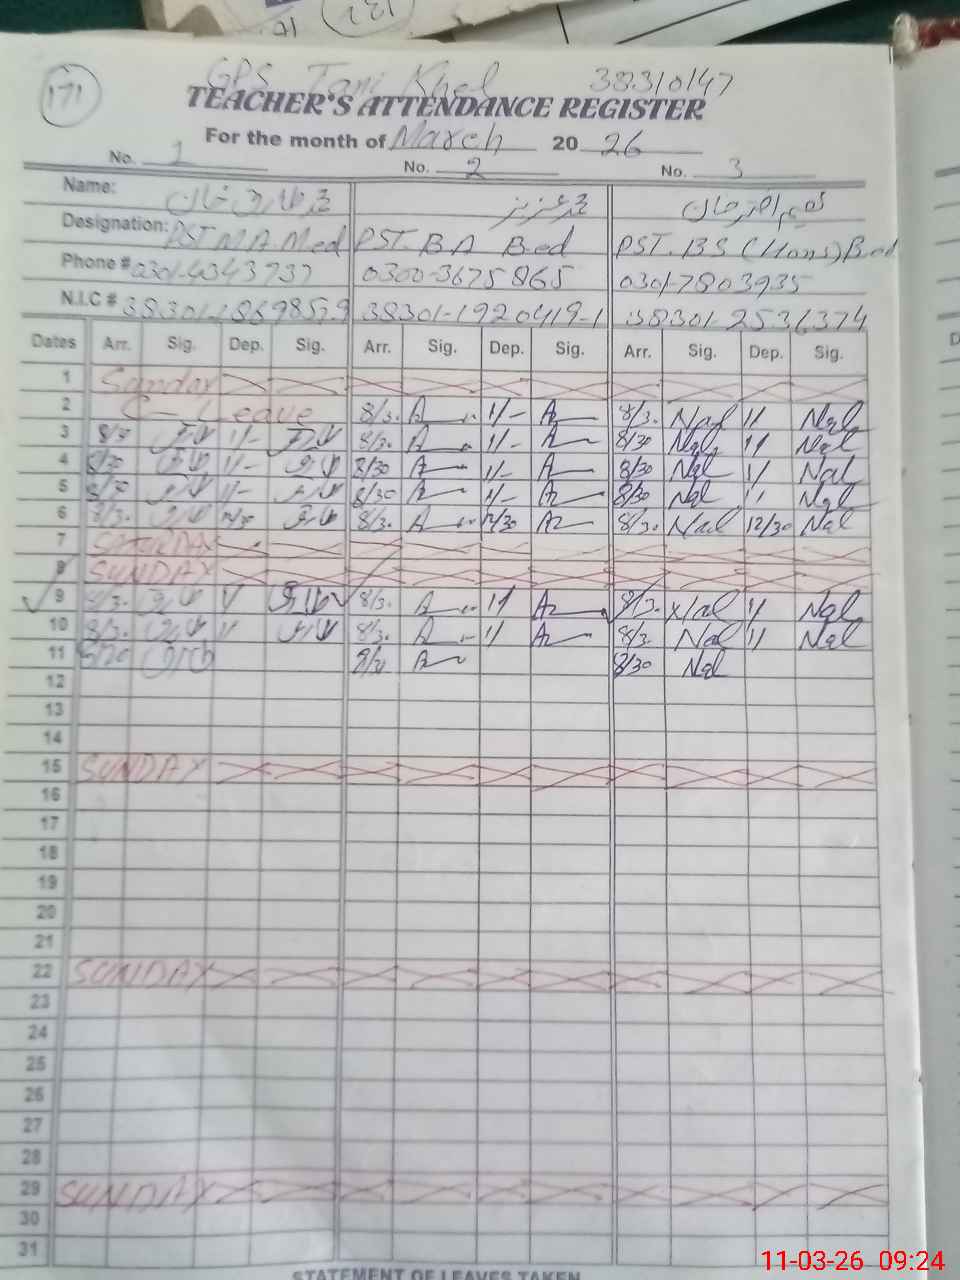 171
GPS Tani Khel 38310147
TEACHER'S ATTENDANCE REGISTER
For the month of March 2026
No. 1 No. 2 No. 3
Name: محمد طارق خان محمد عزیز
Designation: PST M.A. Med PST. BA Bed PST. BS (Hons) Bed
Phone # 0301-4343737 0300-3675865 0301-7803935
N.I.C # 38301-1869857-9 38301-1920419-1 38301-2536374
Dates Arr. Sig. Dep. Sig. Arr. Sig. Dep. Sig. Arr. Sig. Dep. Sig.
1 Sunday
2 C-Leave 8/3. 1/- 8/3. Nal 1/ Nal
3 8/30 1/- 8/3. 1/- 8/30 Nal 1/ Nal
4 8/30 1/- 8/30 1/- 8/30 Nal 1/ Nal
5 8/30 1/- 8/30 1/- 8/30 Nal 1/ Nal
6 8/3. 12/30 8/3. 12/30 8/3. Nal 12/30 Nal
7 SATURDAY
8 SUNDAY
9 8/3. 8/3. 1/ 8/3. Nal 1/ Nal
10 8/3. 1/ 8/3. 1/ 8/3. Nal 1/ Nal
11 8/30 8/30 8/30 Nal
12
13
14
15 SUNDAY
16
17
18
19
20
21
22 SUNDAY
23
24
25
26
27
28
29 SUNDAY
30
31
STATEMENT OF LEAVES TAKEN
11-03-26 09:24